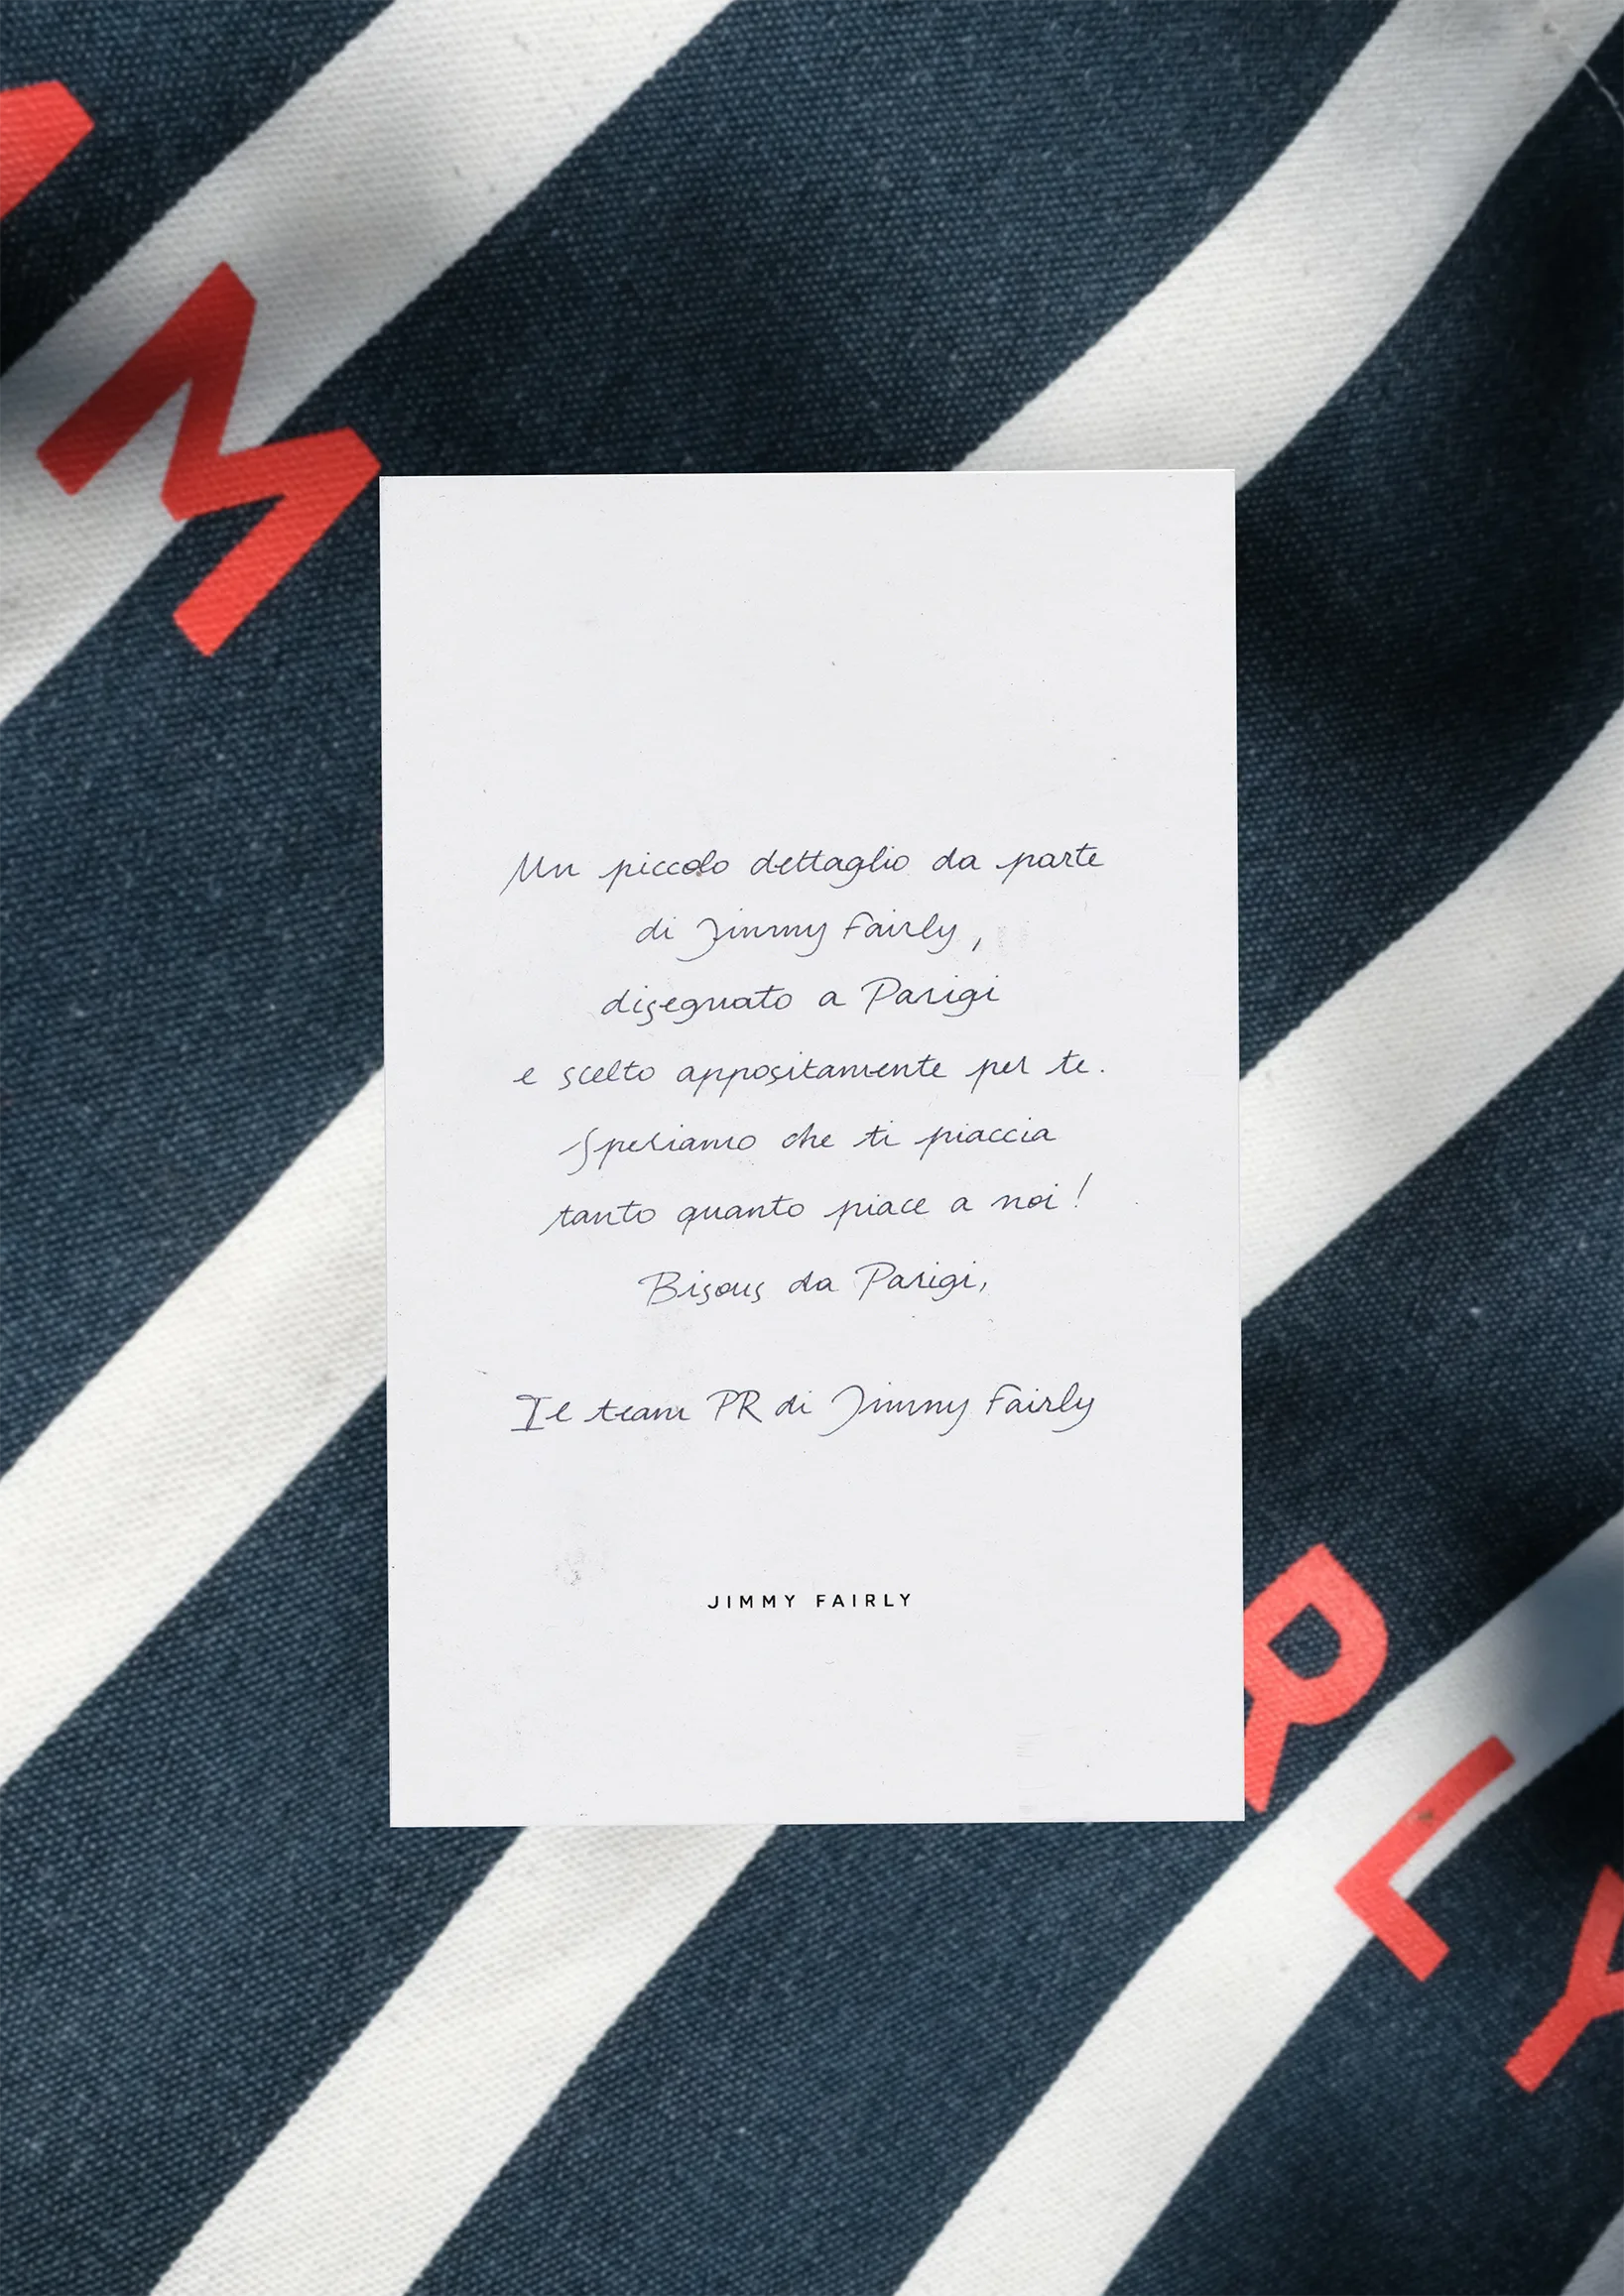 M
Un piccolo dettaglio da parte
di Jimmy Fairly,
disegnato a Parigi
e scelto appositamente per te.
Speriamo che ti piaccia
tanto quanto piace a noi!
Bisous da Parigi,
Il team PR di Jimmy Fairly
JIMMY FAIRLY
RLY